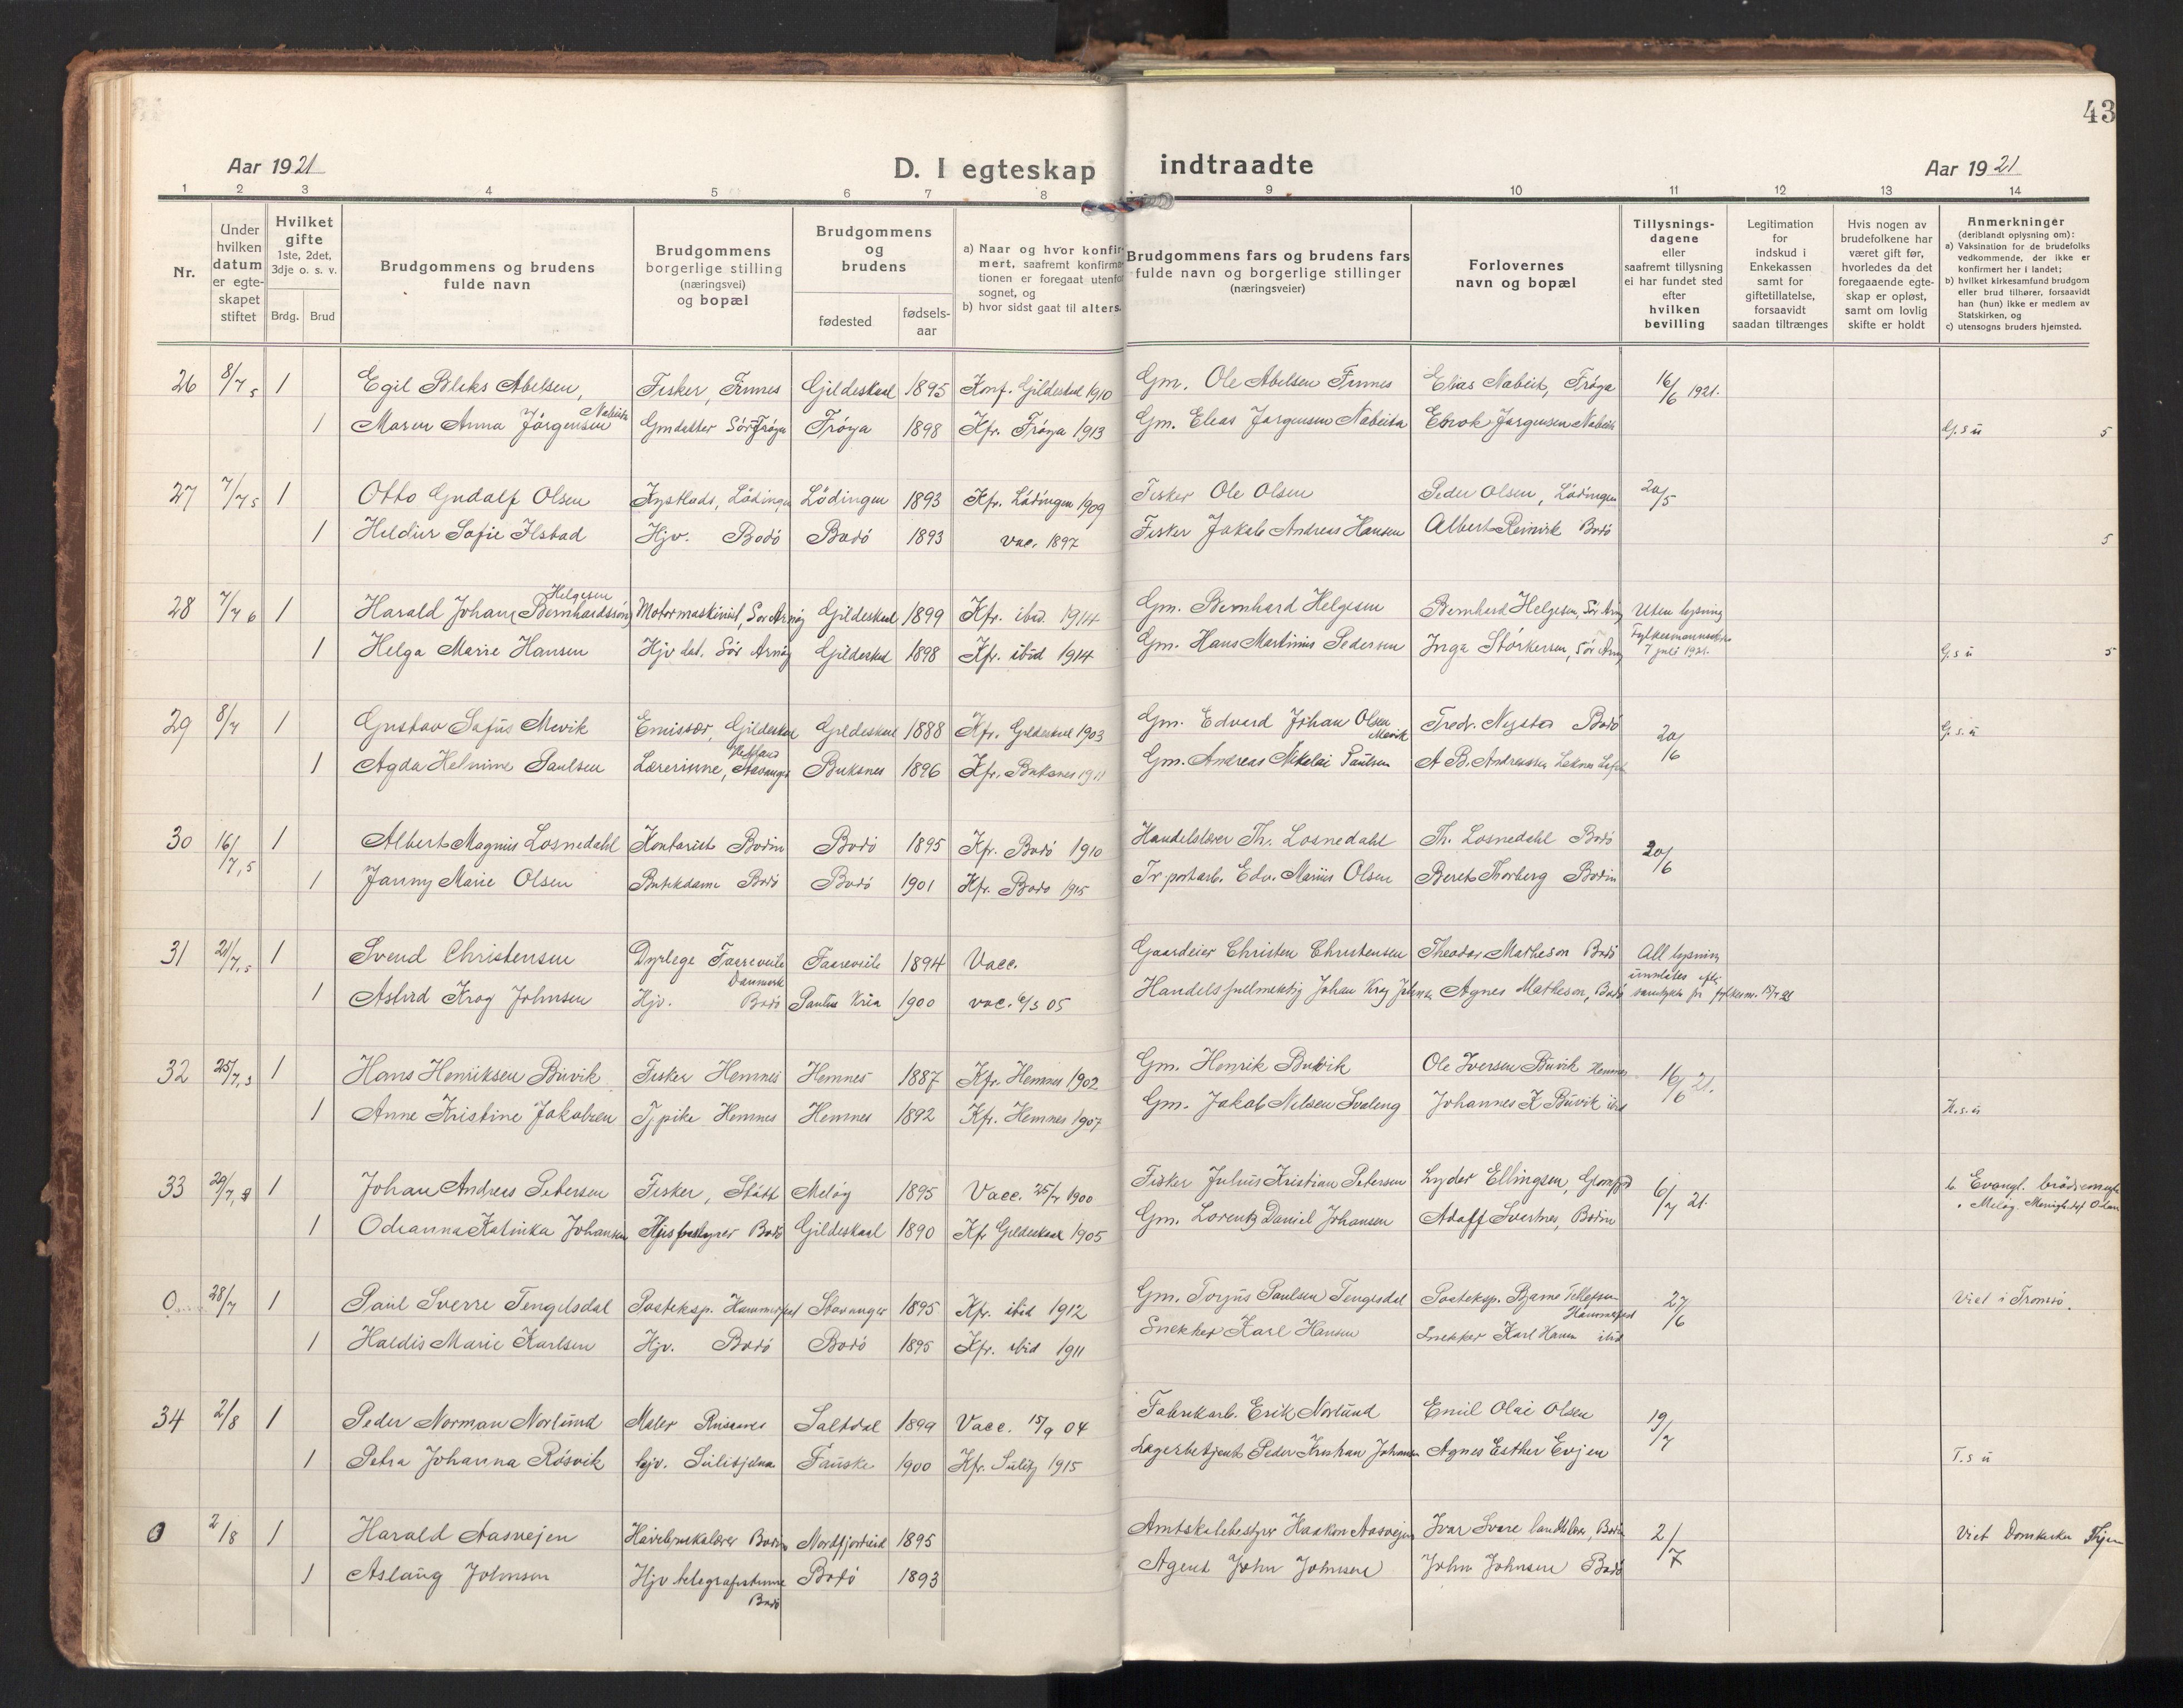 43
Aar 1921 D. I egteskap indtraadte Aar 1921
1 2 3 4 5 6 7 8 9 10 11 12 13 14
Nr.
Under hvilken datum er egte-skapet stiftet
Hvilket gifte 1ste, 2det, 3dje o. s. v.
Brdg. Brud
Brudgommens og brudens fulde navn
Brudgommens borgerlige stilling (næringsvei) og bopæl
Brudgommens og brudens
fødested
fødsels-aar
a) Naar og hvor konfir-mert, saafremt konfirma-tionen er foregaat utenfor sognet, og
b) hvor sidst gaat til alters.
Brudgommens fars og brudens fars fulde navn og borgerlige stillinger (næringsveier)
Forlovernes navn og bopæl
Tillysnings-dagene eller saafremt tillysning ei har fundet sted efter hvilken bevilling
Legitimation for indskud i Enkekassen samt for giftetillatelse, forsaavidt saadan tiltrænges
Hvis nogen av brudefolkene har været gift før, hvorledes da det foregaaende egte-skap er opløst, samt om lovlig skifte er holdt
Anmerkninger (deriblandt oplysning om):
a) Vaksination for de brudefolks vedkommende, der ikke er konfirmert her i landet;
b) hvilket kirkesamfund brudgom eller brud tilhører, forsaavidt han (hun) ikke er medlem av Statskirken, og
c) utensogns bruders hjemsted.
26 8/7 5 1 Egil Bleks Abelsen, Fisker, Finnes Gildeskaal 1895 Konf. Gildeskaal 1910 Gm. Ole Abelsen Finnes Elias Nabeit, Frøya 16/6 1921.
1 Maren Anna Jörgensen Nabeita Gmdatter Sör Fröya Fröya 1898 Kfr. Fröya 1913 Gm. Elias Jørgensen Nabeita Enok Jørgensen Nabeit G.s u 5
27 7/7 5 1 Otto Gudolf Olsen Lödingen Lödingen 1893 Kfr. Lödingen 1909 Fisker Ole Olsen Peder Olsen, Lödingen 20/5
1 Heldur Sofie Ilstad Hjv. Bodö Bodö 1893 vac. 1897 Fisker Jakob Andreas Hansen Albert Reinvik Bodö 5
28 7/7 6 1 Harald Johan Bernhardssön Helgesen Motormaskinist, Sör Arnöy Gildeskaal 1899 Kfr. ibid. 1914 Gm. Bernhard Helgesen Bernhard Helgesen, Sör Arnöy Uten lysning
1 Helga Marie Hansen Hjv dat. Sör Arnöy Gildeskal 1898 Kfr. ibid 1914 Gm. Hans Martinus Pedersen Inga Störkersen, Sör Arnöy 7 juli 1921. G.s u 5
29 8/7 1 Gustav Sofus Mevik Emissær, Gildeskal Gildeskaal 1888 Kfr. Gildeskaal 1903 Gm. Edvard Johan Olsen Mevik Fredr. Nystad Bodö 20/6 G.s.u
1 Agda Helmine Paulsen Lærerinne, Buksnes 1896 Kfr. Buksnes 1911 Gm. Andreas Nikolai Paulsen A B. Andreassen Leknes Lofot
30 16/7, 5 1 Albert Magnus Losnedahl Kontorist Bodin Bodö 1895 Kfr. Bodö 1910 Handelslærer Th. Losnedahl Th. Losnedahl Bodö 20/6
1 Janny Marie Olsen Butikdame Bodö Bodö 1901 Kfr. Bodö 1915 Tr portarb. Edv. Marius Olsen Beret Thorberg Bodin
31 21/7, 5 1 Svend Christensen Dyrlege Faareveile Danmark Faareveile 1894 Vacc. Gaardeier Christen Christensen Theodor Matheson Bodö All lysning
1 Astrid Krog Johnsen Hjv. Bodö Paulus Kria 1900 vac. 6/3 05 Handelsfullmektig Johan Krog Johnsen Agnes Matheson, Bodö unnlates efter samtykke fr fylkesm. 15/7 21
32 25/7, 3 1 Hans Henriksen Buvik Fisker Hemnes Hemnes 1887 Kfr. Hemnes 1902 Gm. Henrik Buvik Ole Iversen Buvik Hemnes 16/6 21.
1 Anne Kristine Jakobsen Tj.pike Hemnes Hemnes 1892 Kfr. Hemnes 1907 Gm. Jakob Nilsen Svaleng Johannes K Buvik ibid H.s.u
33 29/7, 1 Johan Andreas Petersen Fisker, Stött Melöy 1895 Vacc. 25/7 1900 Fisker Julius Kristian Petersen Lyder Ellingsen, Glomfj 6/7 21. b. Evangl. brödremenighet
1 Odianna Katinka Johansen Husbestyrer Bodö Gildeskaal 1890 Kf Gildeskaal 1905 Gm. Lorentz Daniel Johansen Adolf Svertnes, Bodin i Melöy.
0 28/7 1 Paul Sverre Tengelsdal Posteksp. Hammerfest Stavanger 1895 Kfr. ibid 1912 Gm. Torjus Paulsen Tengesdal Posteksp. Bjarne Tellefsen Hammerfest 27/6 Viet i Tromsö.
1 Haldis Marie Karlsen Hjv. Bodö Bodö 1895 Kfr. ibid 1911 Snekker Karl Hansen Snekker Karl Hansen ibid
34 2/8 1 Peder Norman Norlund Maler Saltdal 1899 Vacc. 15/9 04 Fabrikarb. Erik Norlund Emil Olai Olsen 19/7
1 Petra Johanna Rösvik hjv. Sulitjelma Fauske 1900 Kfr. Sulitj 1915 Lagerbetjent Peder Kristian Johansen Agnes Esther Evjen T.s u
0 2/8 1 Harald Aasvejen Havebrukslærer Bodin Nordfjordeid 1895 Amtskolebestyrer Haakon Aasvejen Ivar Svare landbl, Bodin 2/7 Viet Domkirken
1 Aslaug Johnsen Hjv telegrafistinne Bodö Bodö 1893 Agent John Johnsen John Johnsen Bodö